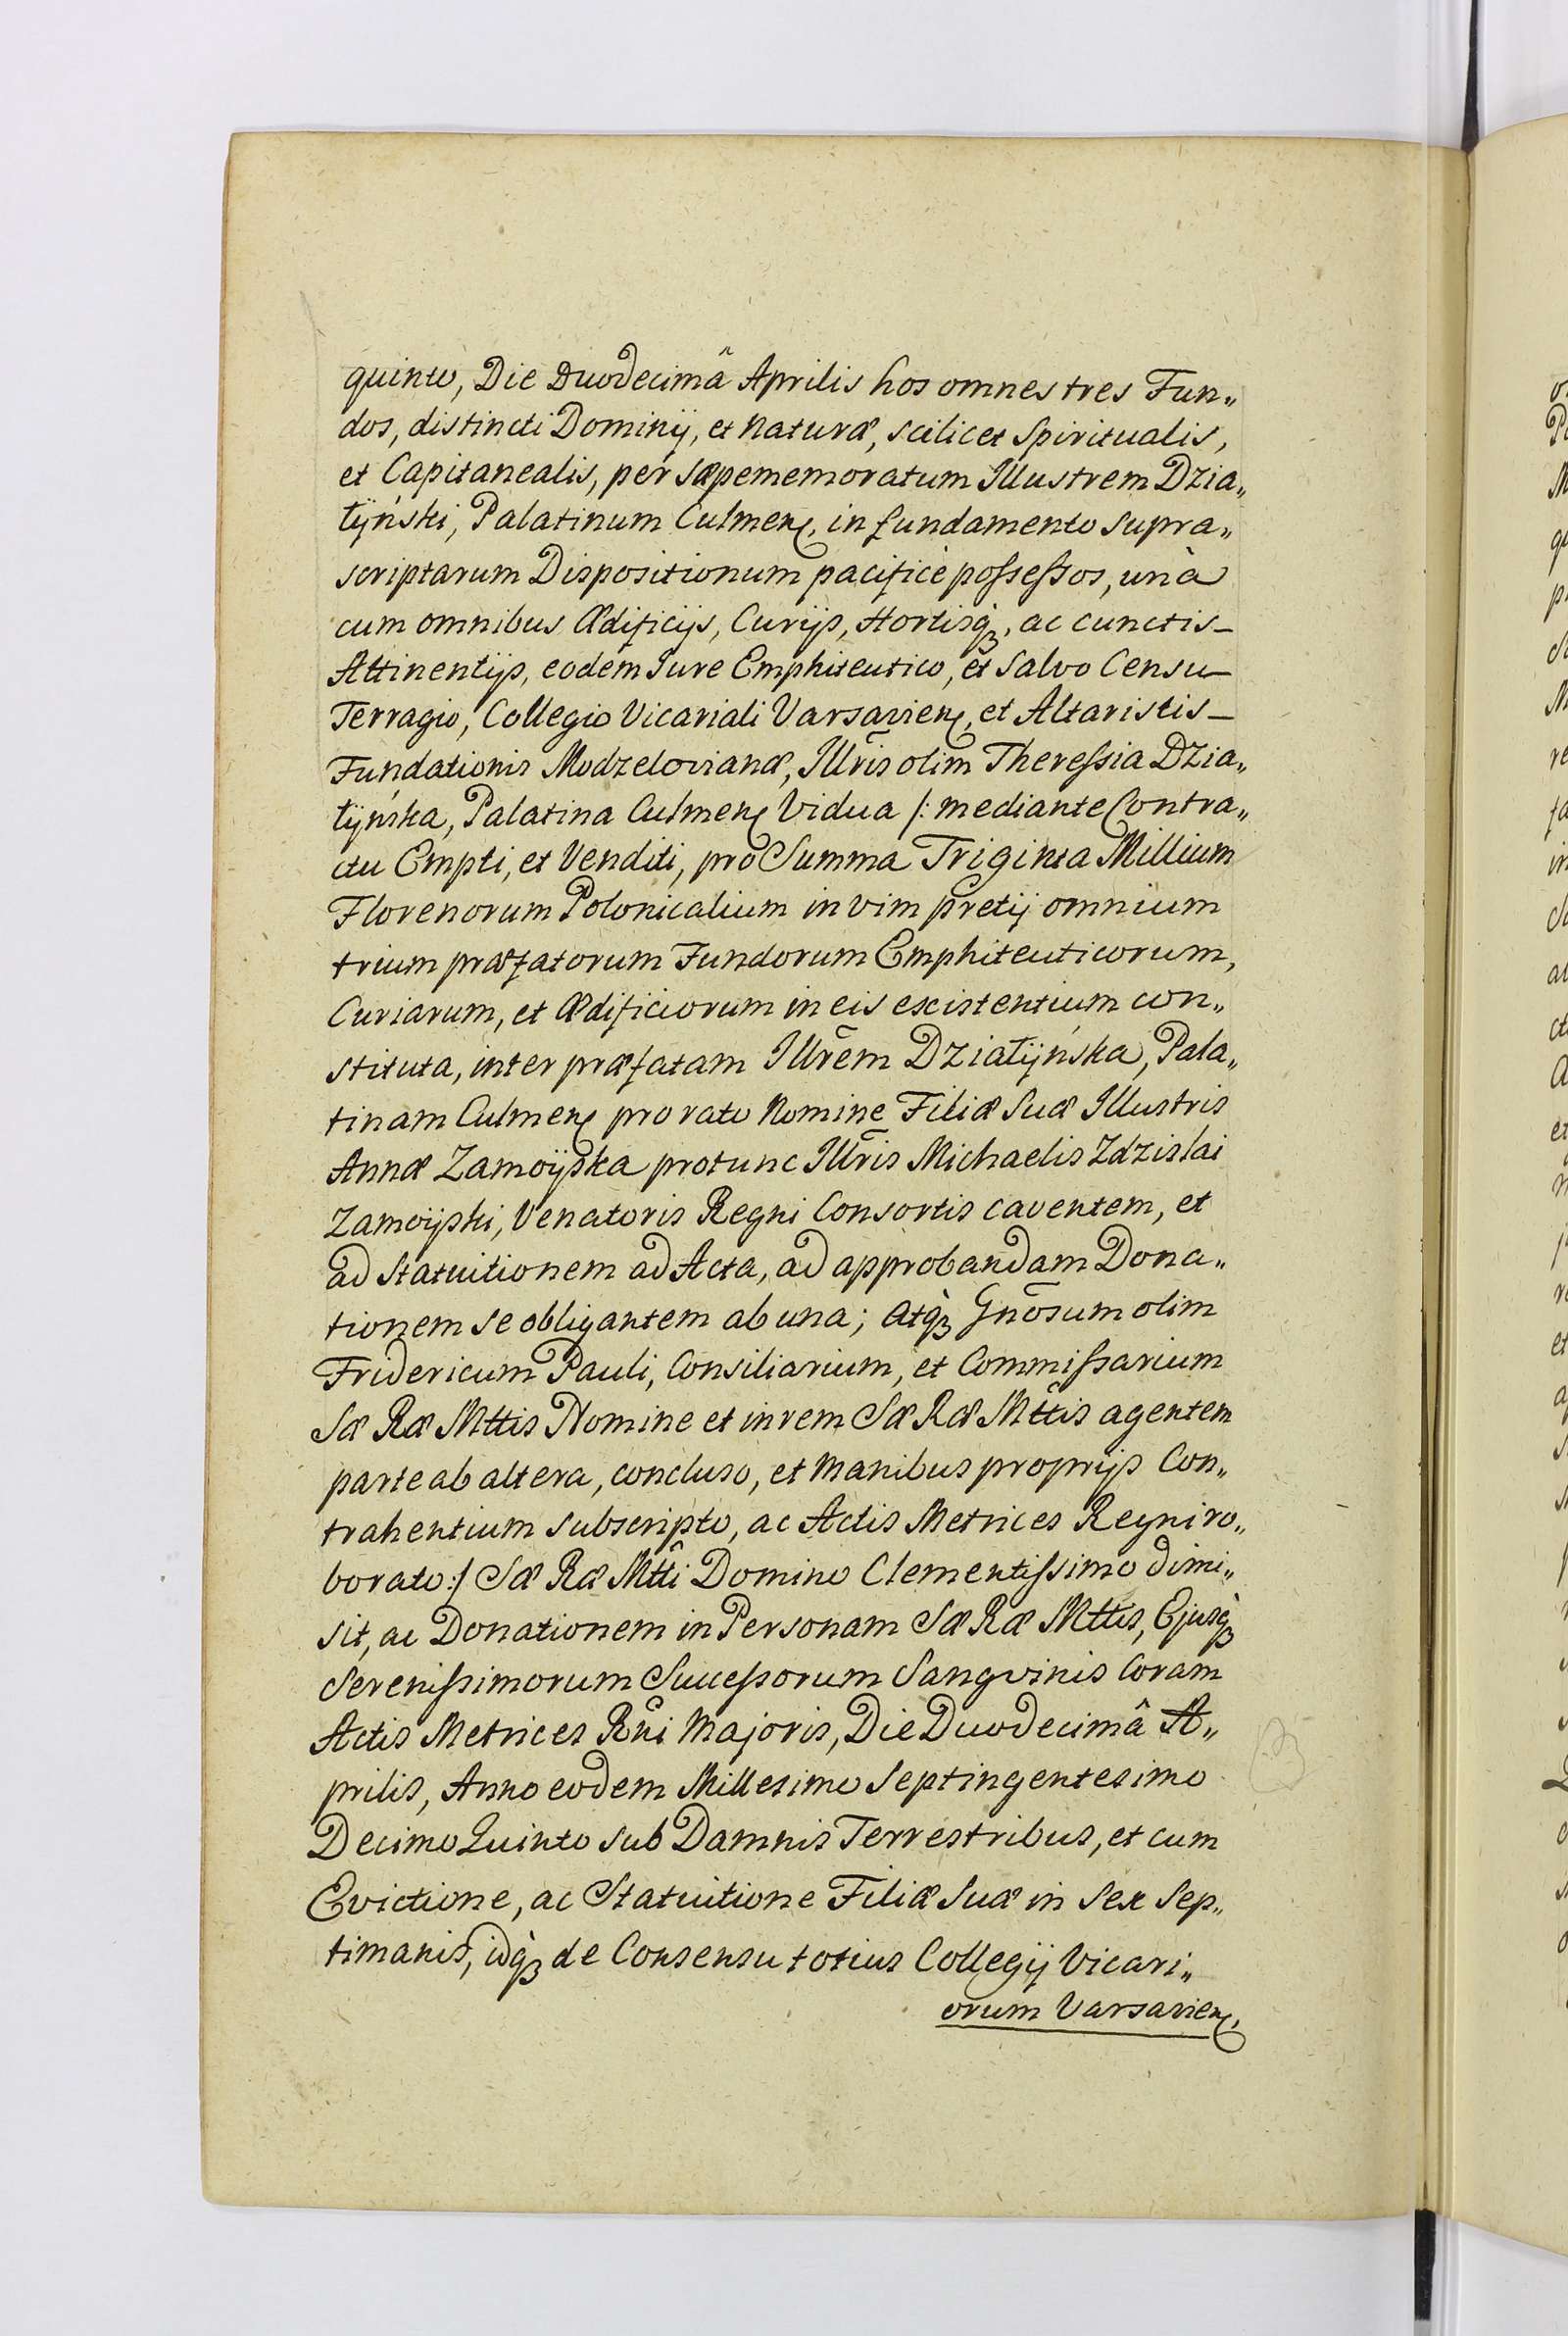 quinto, Die Duodecimâ Aprilis hos omnes tres Fun„
dos, distincti Dominij, et naturæ, scilicet Spiritualis,
et Capitanealis, per sæpememoratum Illustrem Dzia„
łÿński, Palatinum Culmen, in fundamento supra„
scriptarum Dispositionum pacificè poſseſsos, unà
cum omnibus Ædificijs, Curijs, Hortisq₃, ac cunctis_
Attinentijs, eodem Jure Emphiteutico, et salvo Censu_
Terragio, Collegio Vicariali Varsavien, et Altaristis_
Fundationis Modzelovianæ, Illris olim Thereſsia Dzia„
łÿńska, Palatina Culmen Vidua /: mediante Contra„
ctu Empti, et Venditi, pro Summa Triginta Millium
Florenorum Polonicalium in vim pretij omnium
trium præfatorum Fundorum Emphiteuticorum,
Curiarum, et Ædificiorum in eis existentium con„
stituta, inter præfatam Illrem Działÿńska, Pala„
tinam Culmen pro rato Nomine Filiæ Suæ Illustris
Annæ Zamoÿska protunc Illris Michaelis Zdzislai
Zamoÿski, Venatoris Regni Consortis caventem, et
ad Statuitionem ad Acta, ad approbandam Dona„
tionem se obligantem ab una; atq₃ Gnosum olim
Fridericum Pauli, Consiliarium, et Commiſsarium
Sæ Ræ Mttis Nomine et in rem Sæ Ræ Mttis agentem
parte ab altera, concluso, et Manibus proprijs Con„
trahentium subscripto, ac Actis Metrices Regni ro„
borato:/ Sæ Ræ Mtti Domino Clementiſsimo dimi„
sit, ac Donationem in Personam Sæ Ræ Mttis, Ejusq₃
Sereniſsimorum Succeſsorum Sangvinis Coram
Actis Metrices Rni Majoris, Die Duodecimâ A„
prilis, Anno eodem Millesimo Septingentesimo
Decimo Quinto sub Damnis Terrestribus, et cum
Evictione, ac Statuitione Filiæ Suæ in Sex Sep„
timanis, idq₃ de Consensu totius Collegij Vicari„
orum Varsavien,